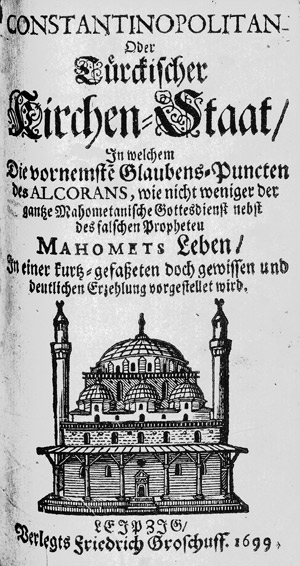 CONSTANTINOPOLITAN-
Oder
Türckischer
Kirchen-Staat/
In welchem
Die vornemste Glaubens-Puncten
des ALCORANS, wie nicht weniger der
gantze Mahometanische Gottesdienst nebst
des falschen Propheten
MAHOMETS Leben/
In einer kurtz-gefaßeten doch gewissen und
deutlichen Erzehlung vorgestellet wird.
LEIPZIG/
Verlegts Friedrich Groschuff. 1699.